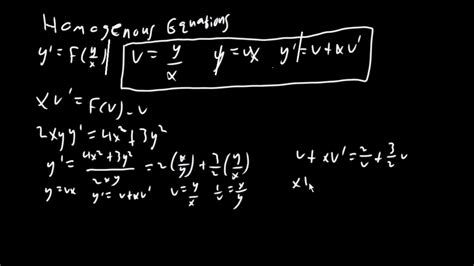 Homogenous Equations
y' = F(y/x) v = y/x y = vx y' = v + xv'
xv' = F(v) - v
2xyy' = 4x² + 3y²
y' = (4x² + 3y²)/(2xy) = 2(x/y) + 3/2(y/x) v + xv' = 2/v + 3/2 v
y = vx y' = v + xv' v = y/x 1/v = x/y xv